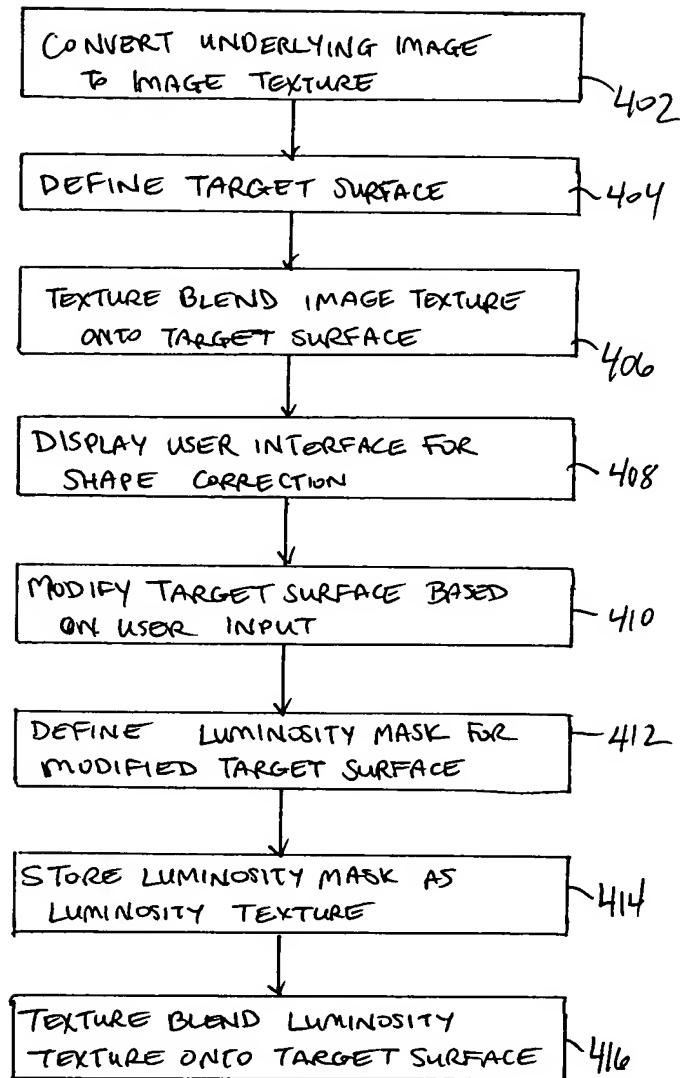 CONVERT UNDERLYING IMAGE
TO IMAGE TEXTURE
402
DEFINE TARGET SURFACE
404
TEXTURE BLEND IMAGE TEXTURE
ONTO TARGET SURFACE
406
DISPLAY USER INTERFACE FOR
SHAPE CORRECTION
408
MODIFY TARGET SURFACE BASED
ON USER INPUT
410
DEFINE LUMINOSITY MASK FOR
MODIFIED TARGET SURFACE
412
STORE LUMINOSITY MASK AS
LUMINOSITY TEXTURE
414
TEXTURE BLEND LUMINOSITY
TEXTURE ONTO TARGET SURFACE
416